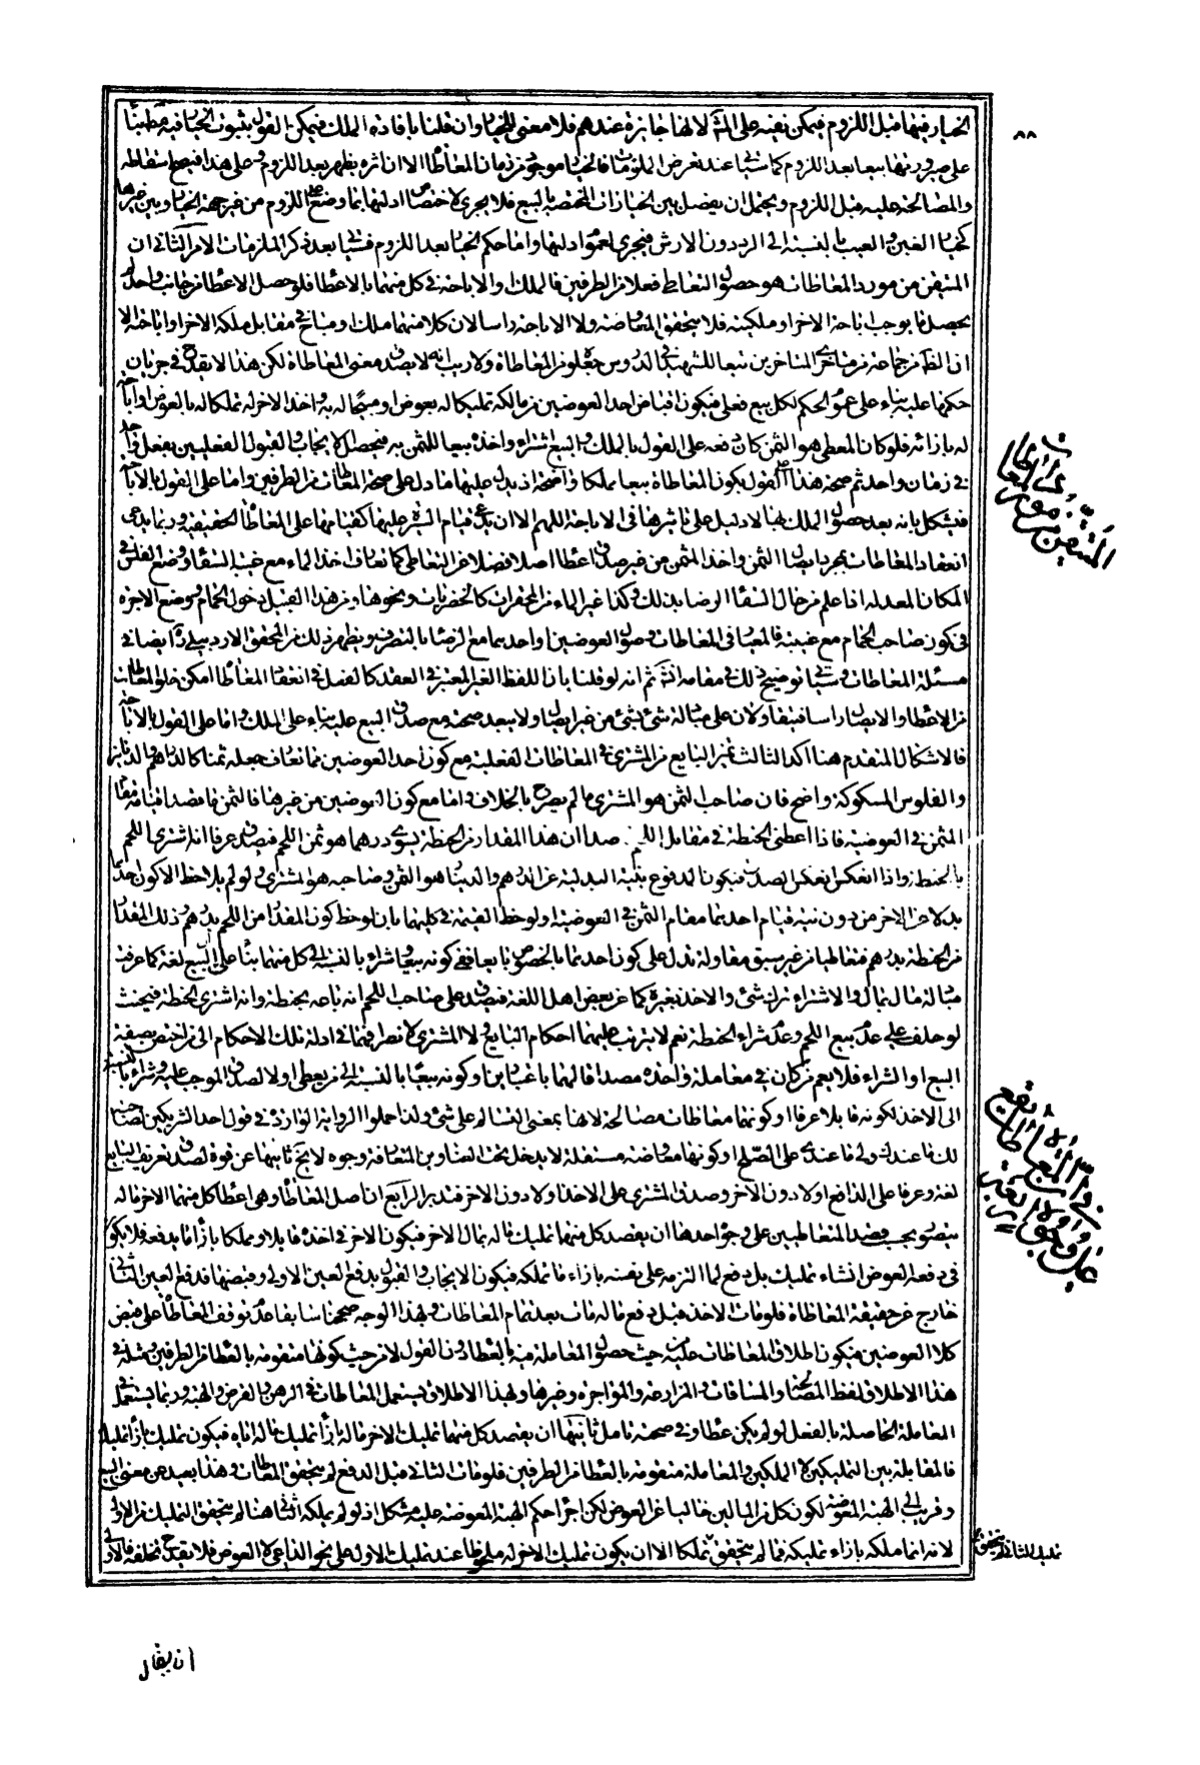 ٨٨
الخيار فيها قبل اللزوم فيمكن نفيه على المش لانها جايزة عندهم فلا معنى للخيار وان قلنا بافادة الملك فيمكن القول بثبوت الخيار فيه مطلقا
على صيرورتها بيعا بعد اللزوم كما سياتى عند تعرض الملزمات فالخيار موجود من زمان المعاطاة الا ان اثره يظهر بعد اللزوم وعلى هذا فيصح اسقاطه
والمصالحة عليه قبل اللزوم ويحتمل ان يفصل بين الخيارات المختصة بالبيع فلا يجرى لاختصاص ادلتها بما وضع على اللزوم من غير جهة الخيار وبين غيرها
كخيار الغبن والعيب بالنسبة الى الرد دون الارش فيجرى لعموم ادلتها واما حكم الخيار بعد اللزوم فسياتى بعد ذكر الملزمات الامر الثانى ان
المتيقن من مورد المعاطات هو حصول التعاطى فعلا من الطرفين فالملك والاباحة فى كل منهما بالاعطاء فلو حصل الاعطاء من جانب واحد لم
يحصل ما يوجب اباحة الاخر او ملكيته فلا يتحقق المعاوضة ولا الاباحة راسا لان كلا منهما ملك او مباح فى مقابل ملكه الاخر او اباحته الا
ان الظ من جماعة من متاخرى المتاخرين تبعا للشهيد فى الدروس جعله من المعاطاة ولا ريب انه لا يصدق معنى المعاطاة لكن هذا لا يقدح فى جريان
حكمها عليه بناء على عموم الحكم لكل بيع فعلى فيكون اقباض احد العوضين من مالكه تمليكا له بعوض او مبيحا له به واخذ الاخر له تملكا له بالعوض او اباحة
له بازائه فلو كان المعطى هو الثمن كان دفعه على القول بالملك والبيع اشتراء واخذه بيعا للمثمن به فيحصل الايجاب والقبول الفعليين بفعل واحد
فى زمان واحد ثم صحة هذا على القول بكون المعاطاة بيعا مملكا واضحة اذ يدل عليها ما دل على صحة المعاطاة من الطرفين واما على القول بالاباحة
فيشكل بانه بعد حصول الملك بها لا دليل على تاثيرها فى الاباحة اللهم الا ان يدعى قيام السيرة عليها كقيامها على المعاطاة الحقيقية وربما يدعى
انعقاد المعاطات بمجرد ايصال الثمن واخذ المثمن من غير صدق اعطاء اصلا فضلا عن التعاطى كما تعارف اخذ الماء مع غيبة السقاء ووضع الفلس فى
المكان المعد له اذا علم من حال السقاء الرضا بذلك وكذا غير الماء من المحقرات كالخضريات ونحوها ومن هذا القبيل دخول الحمام ووضع الاجرة
فى كوز صاحب الحمام مع غيبته فالمعيار فى المعاطات وصول العوضين او احدهما مع الرضا بالتصرف ويظهر ذلك من المحقق الاردبيلى ره ايضا فى
مسئلة المعاطات وسياتى توضيح ذلك فى مقامه انش ثم انه لو قلنا بان اللفظ الغير المعتبر فى العقد كالفعل فى انعقاد المعاطاة امكن خلو المعاطات
من الاعطاء والايصال راسا فيتقاولان على مبادلة شئ بشئ من غير ايصال ولا يبعد صحته مع صدق البيع عليه بناء على الملك واما على القول بالاباحة
فالاشكال المتقدم هنا اكد الثالث تميز البايع من المشترى فى المعاطات الفعلية مع كون احد العوضين مما تعارف جعله ثمنا كالدراهم والدنانير
والفلوس المسكوكة واضح فان صاحب الثمن هو المشترى ما لم يصرح بالخلاف واما مع كون العوضين من غيرها فالثمن ما قصدا قيامه مقام
الثمن فى العوضية فاذا اعطى الحنطة فى مقابل اللحم قاصدا ان هذا المقدار من الحنطة يسوى درهما هو ثمن اللحم فيصدق عرفا انه اشترى اللحم
بالحنطة واذا انعكس انعكس الصدق فيكون المدفوع بنية البدلية عن الدرهم والدينار هو الثمن وصاحبه هو المشترى ولو لم يلاحظ الا كون احدهما
بدلا عن الاخر من دون نية قيام احدهما مقام الثمن فى العوضية او لوحظ القيمة فى كليهما بان لوحظ كون المقدار من اللحم بدرهم وذلك المقدار
من الحنطة بدرهم فتعاطيا من غير سبق مقاولة تدل على كون احدهما بالخصوص بايعا ففى كونه بيعا وشراء بالنسبة الى كل منهما بناء على ان البيع لغة كما عرفت
مبادلة مال بمال والاشتراء ترك شئ والاخذ بغيره كما عن بعض اهل اللغة فيصدق على صاحب اللحم انه باعه بحنطة وانه اشترى الحنطة فيحنث
لو حلف على عدم بيع اللحم وعدم شراء الحنطة نعم لا يترتب عليهما احكام البايع ولا المشترى لانصرافهما فى ادلة تلك الاحكام الى من اختص بصفة
البيع او الشراء فلا يعم من كان فى معاملة واحدة مصداقا لهما باعتبارين او كونه بيعا بالنسبة الى من يعطى اولا لصدق الموجب عليه وشراء بالنسبة
الى الاخذ لكونه قابلا عرفا او كونها معاطات مصالحة لانها بمعنى التسالم على شئ ولذا حملوا الرواية الواردة فى قول احد الشريكين لصاحبه
لك ما عندك ولى ما عندى على الصلح او كونها معاوضة مستقلة لا يدخل تحت العناوين المتعارفة وجوه لا يخ ثانيها عن قوة لصدق تعريف البايع
لغة وعرفا على الدافع اولا دون الاخر وصدق المشترى على الاخذ اولا دون الاخر فتدبر الرابع ان اصل المعاطاة وهى اعطاء كل منهما الاخر ماله
يتصور بحسب قصد المتعاطيين على وجوه احدها ان يقصد كل منهما تمليك ماله بمال الاخر فيكون الاخر فى اخذه قابلا ومملكا بازاء ما يدفعه فلا يكون
فى دفعه العوض انشاء تمليك بل دفع لما التزمه على نفسه بازاء ما تملكه فيكون الايجاب والقبول بدفع العين الاولى وقبضها فدفع العين الثانى
خارج عن حقيقة المعاطاة فلو مات الاخذ قبل دفع ماله مات بعد تمام المعاطات وبهذا الوجه صححنا سابقا عدم توقف المعاطاة على قبض
كلا العوضين فيكون اطلاق المعاطات عليه من حيث حصول المعاملة فيه بالعطاء دون القول لا من حيث كونها متقومة بالعطاء من الطرفين ومثله فى
هذا الاطلاق لفظ المصالحة والمساقات والمزارعة والمؤاجرة وغيرها وبهذا الاطلاق يستعمل المعاطات فى الرهن والقرض والهبة وربما يستعمل فى
المعاملة الحاصلة بالفعل ولو لم يكن عطاء وفى صحته تامل ثانيها ان يقصد كل منهما تمليك الاخر ماله بازاء تمليك ماله اياه فيكون تمليك بازاء تمليك
فالمقابلة بين التمليكين لا الملكين والمعاملة متقومة بالعطاء من الطرفين فلو مات الثانى قبل الدفع لم يتحقق المعاطات وهذا بعيد عن معنى البيع
وقريب الى الهبة المعوضة لكون كل من المالين خاليا عن العوض لكن اجراء حكم الهبة المعوضة عليه مشكل اذ لو لم يملكه الثانى هنا لم يتحقق التمليك من الاول
لانه انما ملكه بازاء تمليكه فما لم يتحقق تملكا الا ان يكون تمليك الاخر له ملحوظا عند تمليك الاول على نحو الداعى لا العوض فلا يقدح تخلفه فالاولى
تمليك الثانى لم يتحقق
المتيقن من مورد المعاطات
فى ان المعاطات تقع على وجوه
ان يقال